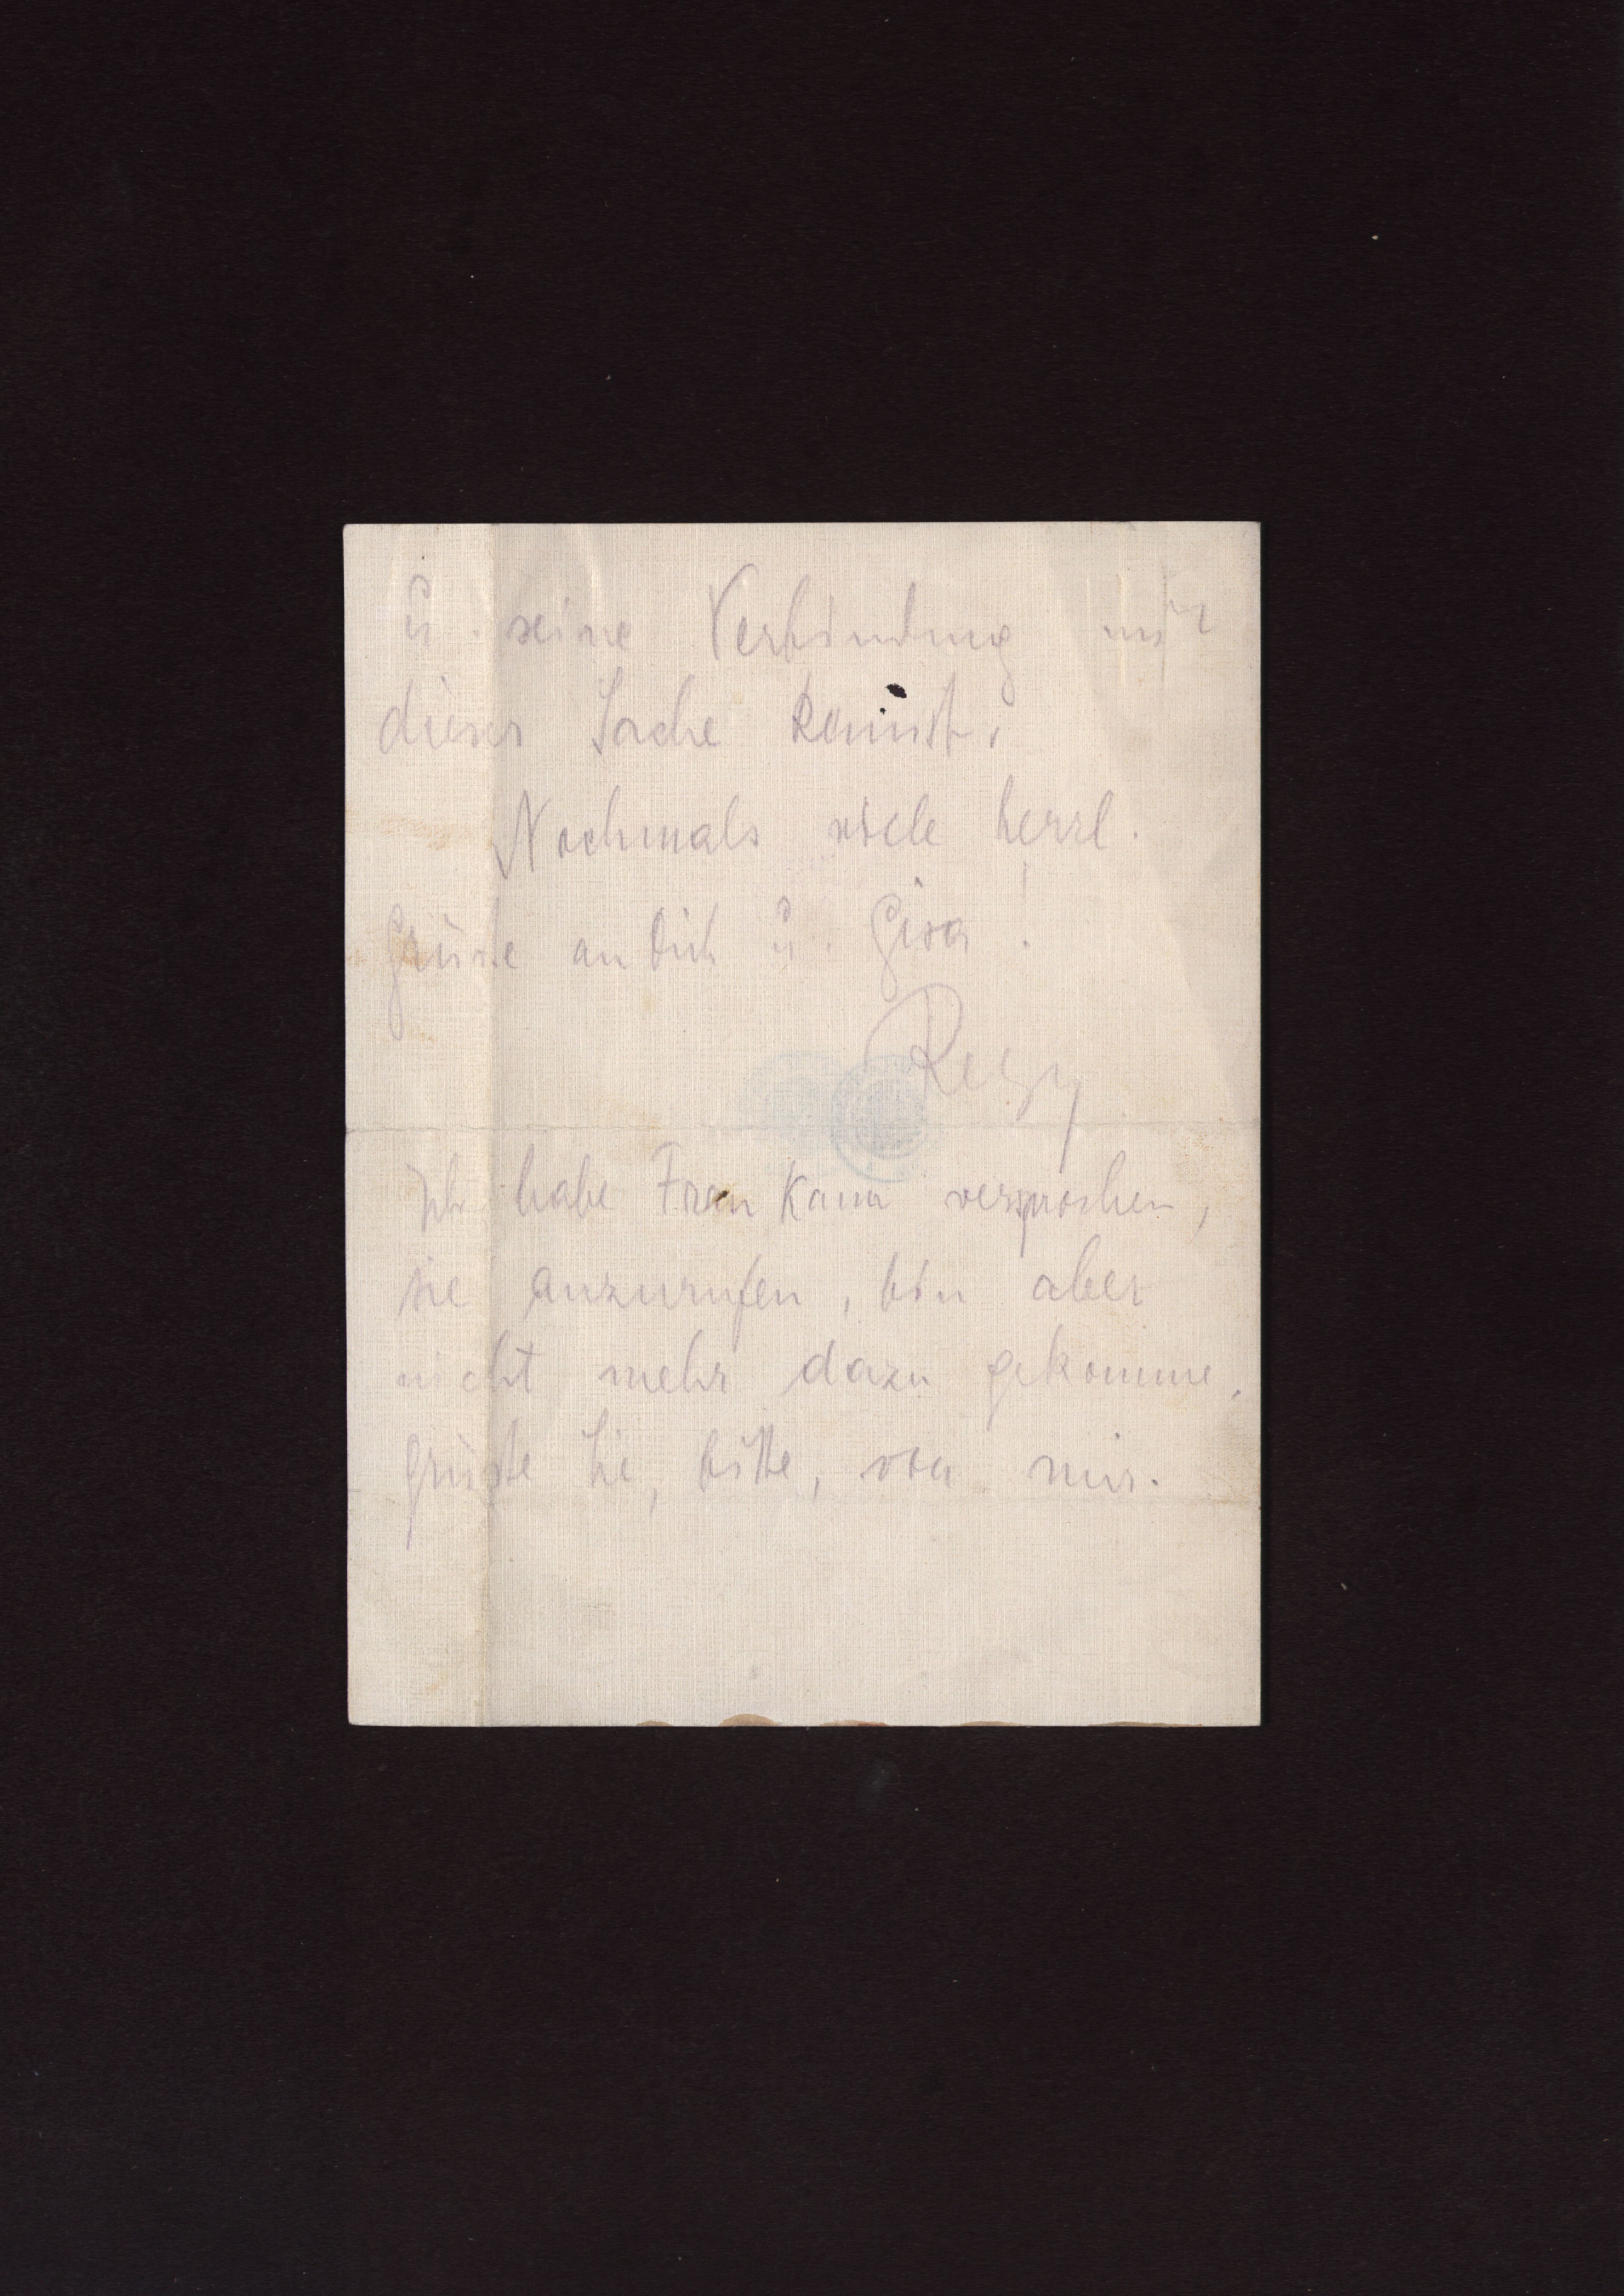 u. seine Verbindung mit
dieser Sache kennst.
Nochmals viele herzl.
Grüsse an Dich u. Gisa!
Ich habe Frau versprochen,
sie anzurufen, bin aber
nicht mehr dazu gekomme.
grüsse Sie, bitte, von mir.